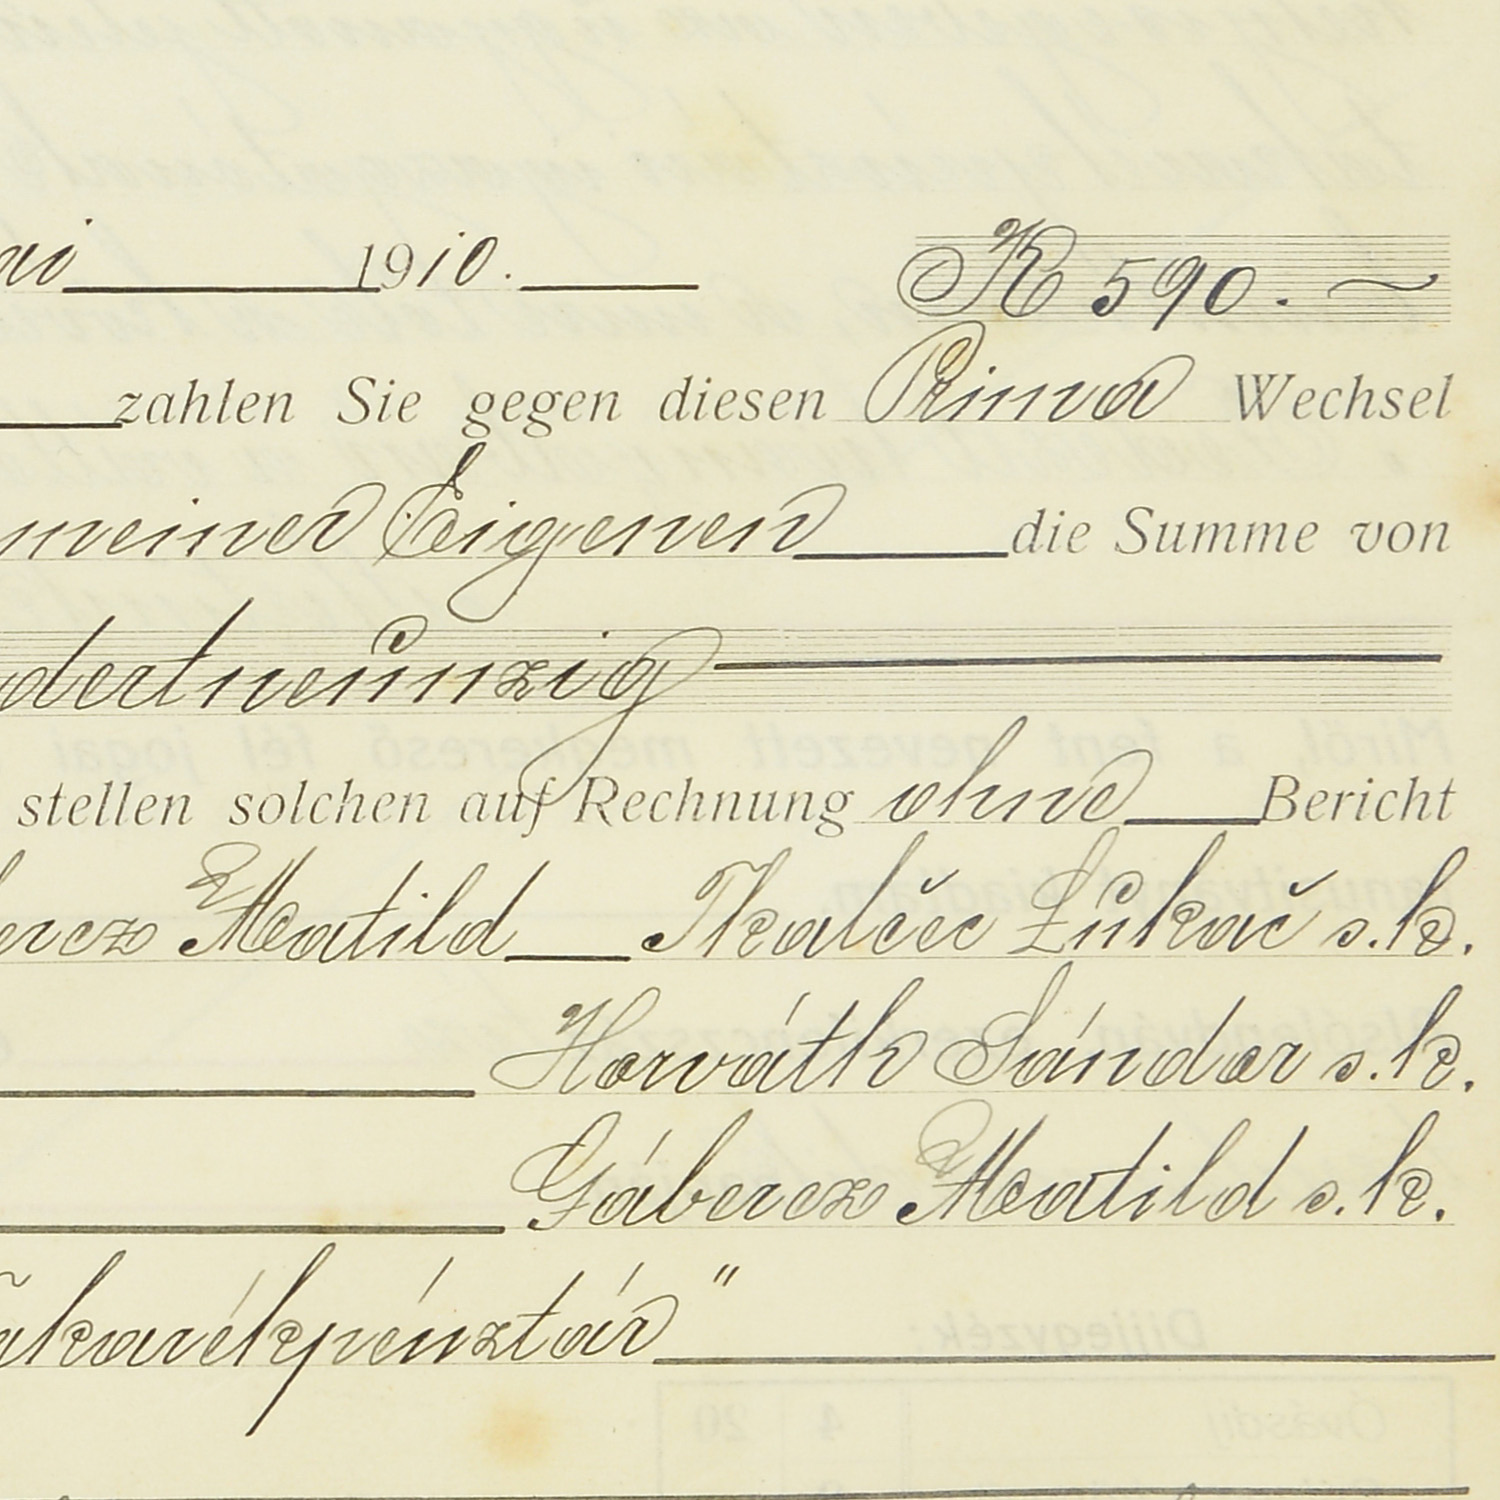 1910. K 590.~
zahlen Sie gegen diesen Prima Wechsel
meiner Eigenen die Summe von
dertneunzig
stellen solchen auf Rechnung ohne Bericht
Matild Tkalčec Lukač s.k.
Horváth Sándor s.k.
Gáborcz Matild s.k.
takarékpénztár"